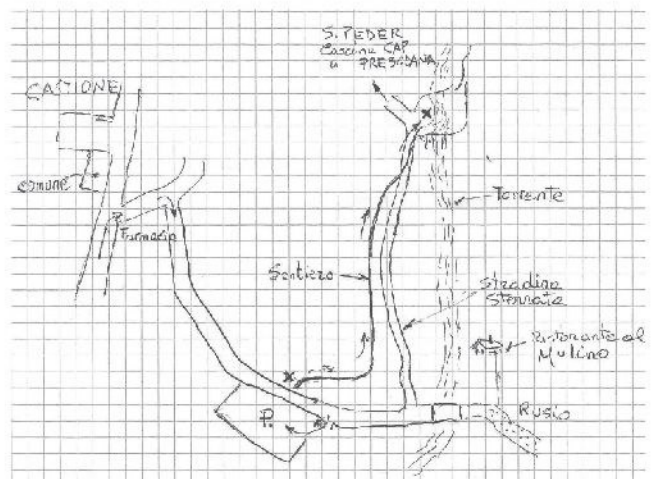 S. PEDER
Cascina CAP
u PRESOLANA
CASTIONE
Comune
Farmacia
Torrente
Sentiero
Stradina
Sterrata
Ristorante al
Mulino
P.
RUSIO